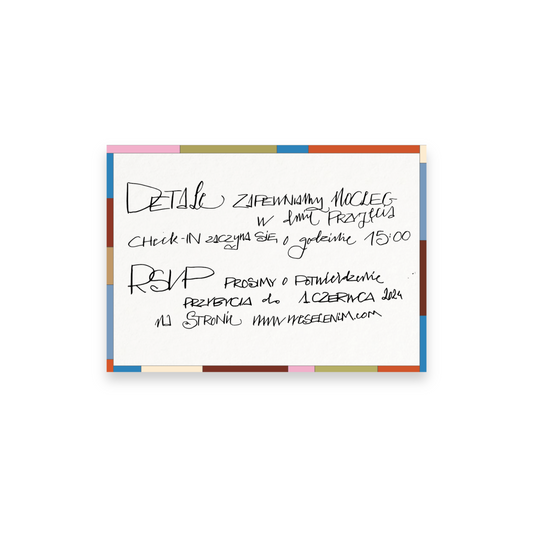 DETALE ZAPEWNIAMY NOCLEG
W dniu PRZYJĘCIA
CHECK-IN ZACZYNA SIĘ O godzinie 15:00
RSVP PROSIMY O POTWIERDZENIE
PRZYBYCIA do 1 CZERWCA 2024
NA STRONIE